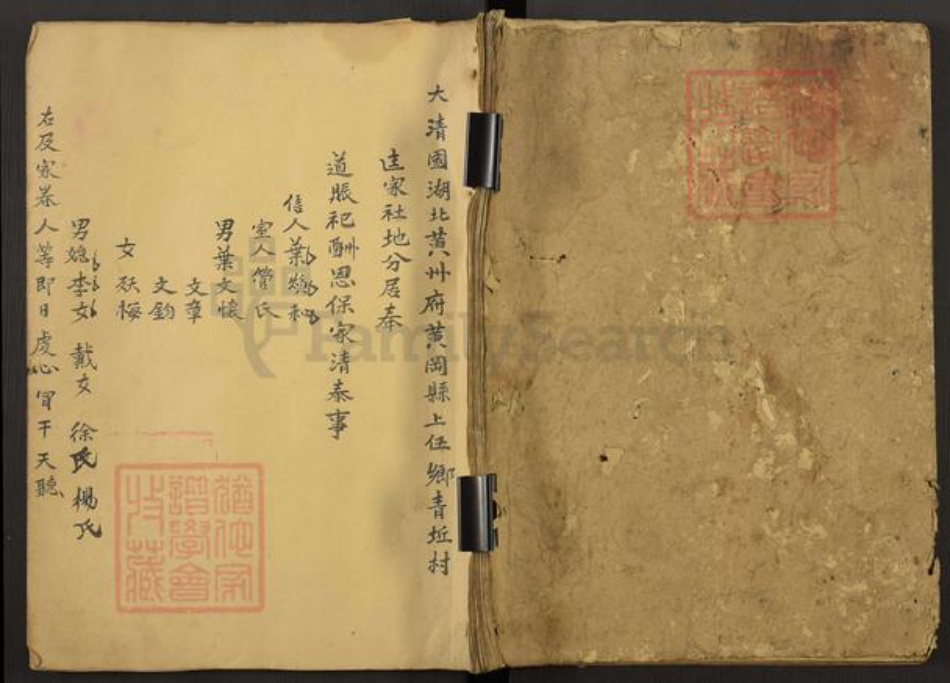 大清國湖北黃州府黃岡縣上伍鄉青坵村
家社地分居奉
道賬祀酬恩保家清泰事
信人葉煥和
室人管氏
男葉文懷
文章
文鈞
女 梅
男媳李女 戴女 徐氏 楊氏
右及家眷人等即日虔心冒干天聽
猶他家
譜學會
收藏
FamilySearch